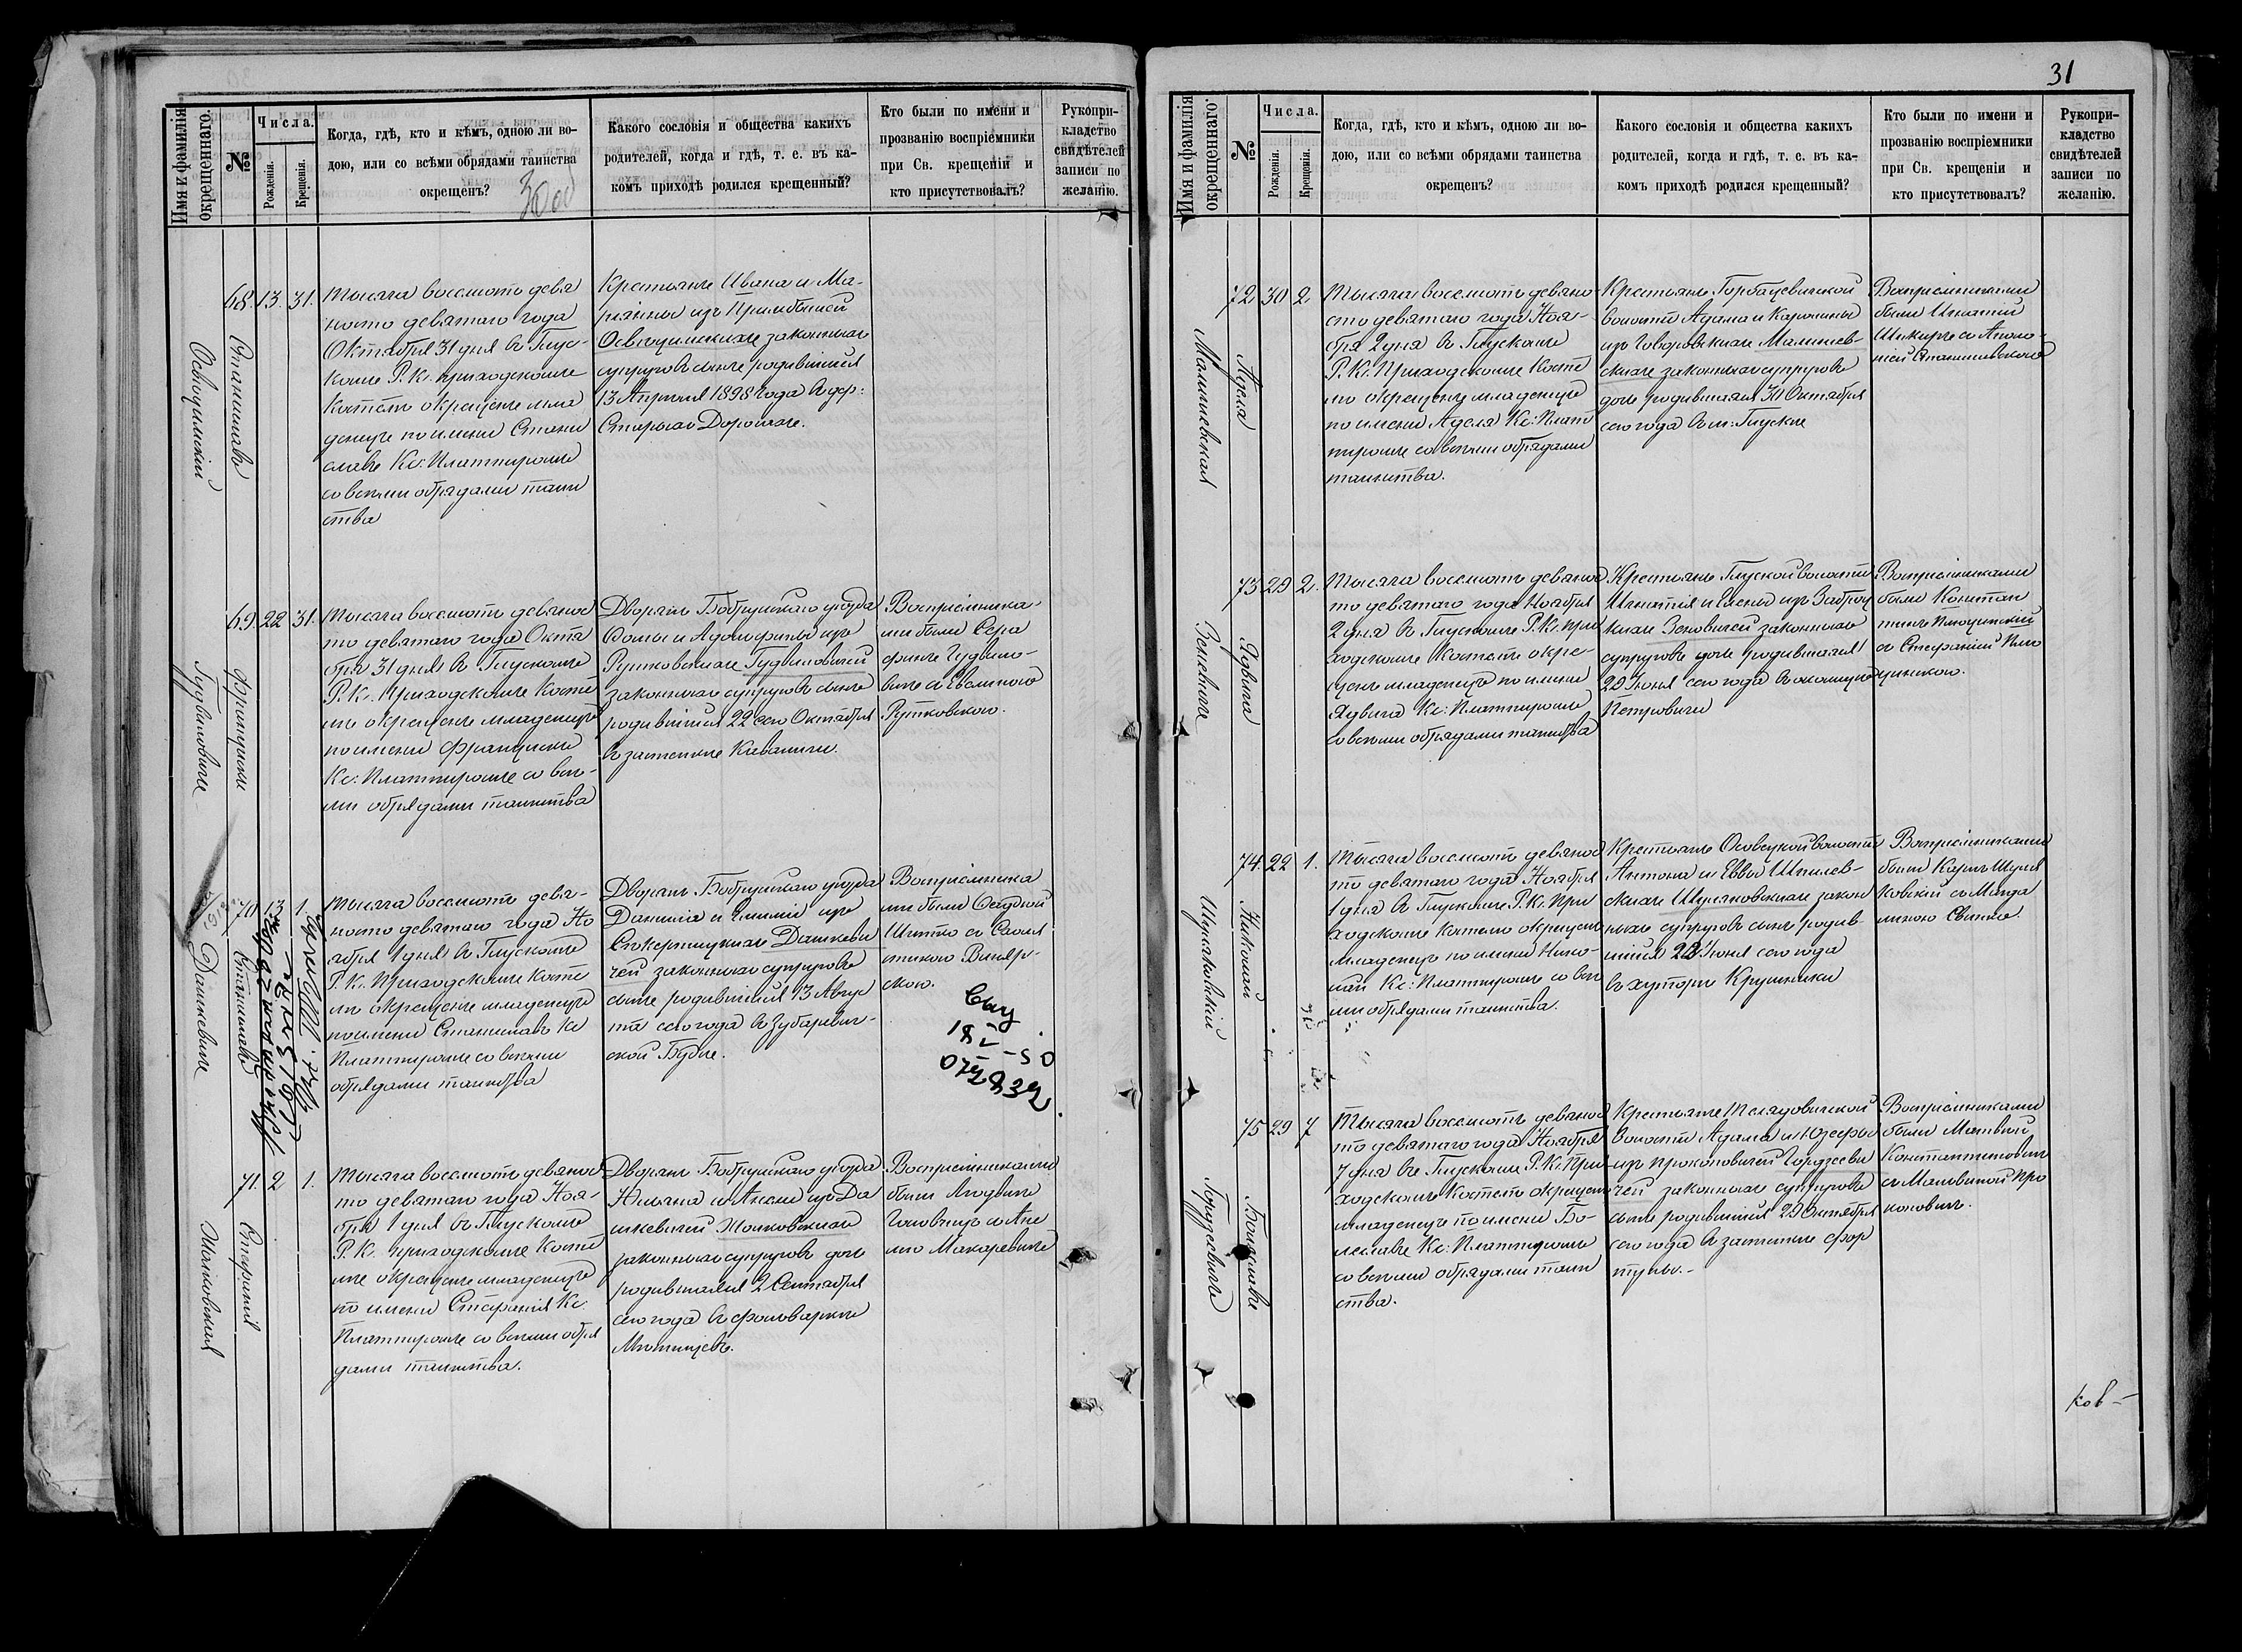 31
Имя и фамилія
окрещеннаго.
№
Числа.
Рожденія.
Крещенія.
Когда, гдѣ, кто и кѣмъ, одною ли во-
дою, или со всѣми обрядами таинства
окрещенъ?
Какого сословія и общества какихъ
родителей, когда и гдѣ, т. е. въ ка-
комъ приходѣ родился крещенный?
Кто были по имени и
прозванію воспріемники
при Св. крещеніи и
кто присутствовалъ?
Рукопри-
кладство
свидѣтелей
записи по
желанію.
Станиславъ
Освоцимскій
68. 13. 31.
Тысяча восемьсотъ девя
носто девятаго года
Октября 31 дня въ Глус-
комъ Р. К. приходскомъ
Костелѣ окрещенъ мла
денецъ по имени Стани
славъ Кс: Платтиромъ
со всѣми обрядами таин
ства
Крестьянъ Ивана и Ма-
ріянны изъ
Освоцимскихъ законныхъ
супруговъ сынъ родившійся
13 Апрѣля 1898 года въ дер:
Старыхъ Дорогахъ.
Францискъ
Гудвиловичъ
69. 22 31.
Тысяча восемьсотъ девянос
то девятаго года Октя
бря 31 дня въ Глускомъ
Р. К. Приходскомъ Косте
лѣ окрещенъ младенецъ
по имени Францискъ
Кс: Платтиромъ со всѣ-
ми обрядами таинства
Дворянъ Бобруйскаго уѣзда
Фомы и Адольфины изъ
Рутковскихъ Гудвиловичей
законныхъ супруговъ сынъ
родившійся 22 сего Октября
въ застѣнкѣ
Воспріемника-
ми были Сера
фимъ Гудвило-
вичъ съ Евелиною
Рутковскою.
Станиславъ
Дашкевичъ
70 13 1.
Тысяча восемьсотъ девя-
носто девятаго года Но
ября 1 дня въ Глускомъ
Р. К. Приходскомъ Косте
лѣ окрещенъ младенецъ
по имени Станиславъ Кс
Платтиромъ со всѣми
обрядами таинства
Дворянъ Бобруйскаго уѣзда
Даніила и Эмиліи изъ
Дашкеви
чей законныхъ супруговъ
сынъ родившійся 13 Авгус
та сего года въ Зубаревич-
ской Будѣ.
Воспріемника
ми были
съ
Стефанія
Жолковская
71. 2 1.
Тысяча восемьсотъ девянос
то девятаго года Ноя-
бря 1 дня въ Глускомъ
Р. К. приходскомъ Косте
лѣ окрещенъ младенецъ
по имени Стефанія Кс.
Платтиромъ со всѣми обря
дами таинства.
Дворянъ Бобруйскаго уѣзда
Юльяна и Анели изъ Да
шкевичей Жолковскихъ
законныхъ супруговъ дочь
родившаяся 2 Сентября
сего года въ фольваркѣ
Воспріемниками
были Людвигъ
съ Ане
лею Макаревичъ
Имя и фамилія
окрещеннаго.
№
Числа.
Рожденія.
Крещенія.
Когда, гдѣ, кто и кѣмъ, одною ли во-
дою, или со всѣми обрядами таинства
окрещенъ?
Какого сословія и общества какихъ
родителей, когда и гдѣ, т. е. въ ка-
комъ приходѣ родился крещенный?
Кто были по имени и
прозванію воспріемники
при Св. крещеніи и
кто присутствовалъ?
Рукопри-
кладство
свидѣтелей
записи по
желанію.
Аделя
Малишевская
72 30 2
Тысяча восемьсотъ девяно-
сто девятаго года Ноя-
бря 2 дня въ Глускомъ
Р. К. Приходскомъ Косте
лѣ окрещенъ младенецъ
по имени Аделя Кс: Плат
тиромъ со всѣми обрядами
таинства.
Крестьянъ Горбацевичской
волости Адама и Каролины
изъ Говоровскихъ Малишев-
скихъ законныхъ супруговъ
дочь родившаяся 30 Октября
сего года въ м: Глускѣ
Воспріемниками
были Игнатій
съ Аполо-
ніей Станишевскою
Ядвига
Зеновичъ
73 29 2.
Тысяча восемьсотъ девянос
то девятаго года Ноября
2 дня въ Глускомъ Р. К. при
ходскомъ Костелѣ окре-
щенъ младенецъ по имени
Ядвига Кс: Платтиромъ
со всѣми обрядами таинства
Крестьянъ Глуской волости
Игнатія и Елены изъ
Зеновичей законныхъ
супруговъ дочь родившаяся
29 Іюня сего года въ околицѣ
Петровичи
Воспріемниками
были Констан
тинъ
съ Стефаніей
Николай
Шуляковскій
74 22 1.
Тысяча восемьсотъ девянос
то девятаго года Ноября
1 дня въ Глускомъ Р. К. При
ходскомъ Костелѣ окрещенъ
младенецъ по имени Нико-
лай Кс: Платтиромъ со всѣ
ми обрядами таинства.
Крестьянъ Осовецкой волости
Антона и Евы Шпилев-
скихъ Шуляковскихъ закон
ныхъ супруговъ сынъ родив-
шійся 22 Іюня сего года
въ хуторѣ Крушники
Воспріемниками
были Карлъ Шуля
ковскій съ Магда
леною
Болеславъ
Гордзеевичъ
75 29 7
Тысяча восемьсотъ девянос
то девятаго года Ноября
7 дня въ Глускомъ Р. К. При
ходскомъ Костелѣ окрещенъ
младенецъ по имени Бо-
леславъ Кс: Платтиромъ
со всѣми обрядами таин
ства.
Крестьянъ Теляцовичской
волости Адама и Юзефы
изъ Прокоповичей Гордзееви
чей законныхъ супруговъ
сынъ родившійся 29 Октября
сего года въ застѣнкѣ Фор
туны.
Воспріемниками
были Матвей
Константиновичъ
съ Мальвиной Про
коповичъ.
ков-